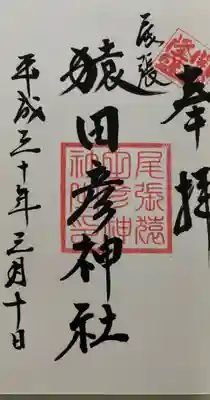 奉拝
尾張
猿田彦神社
平成三十年三月十日
尾張猿
田彦神